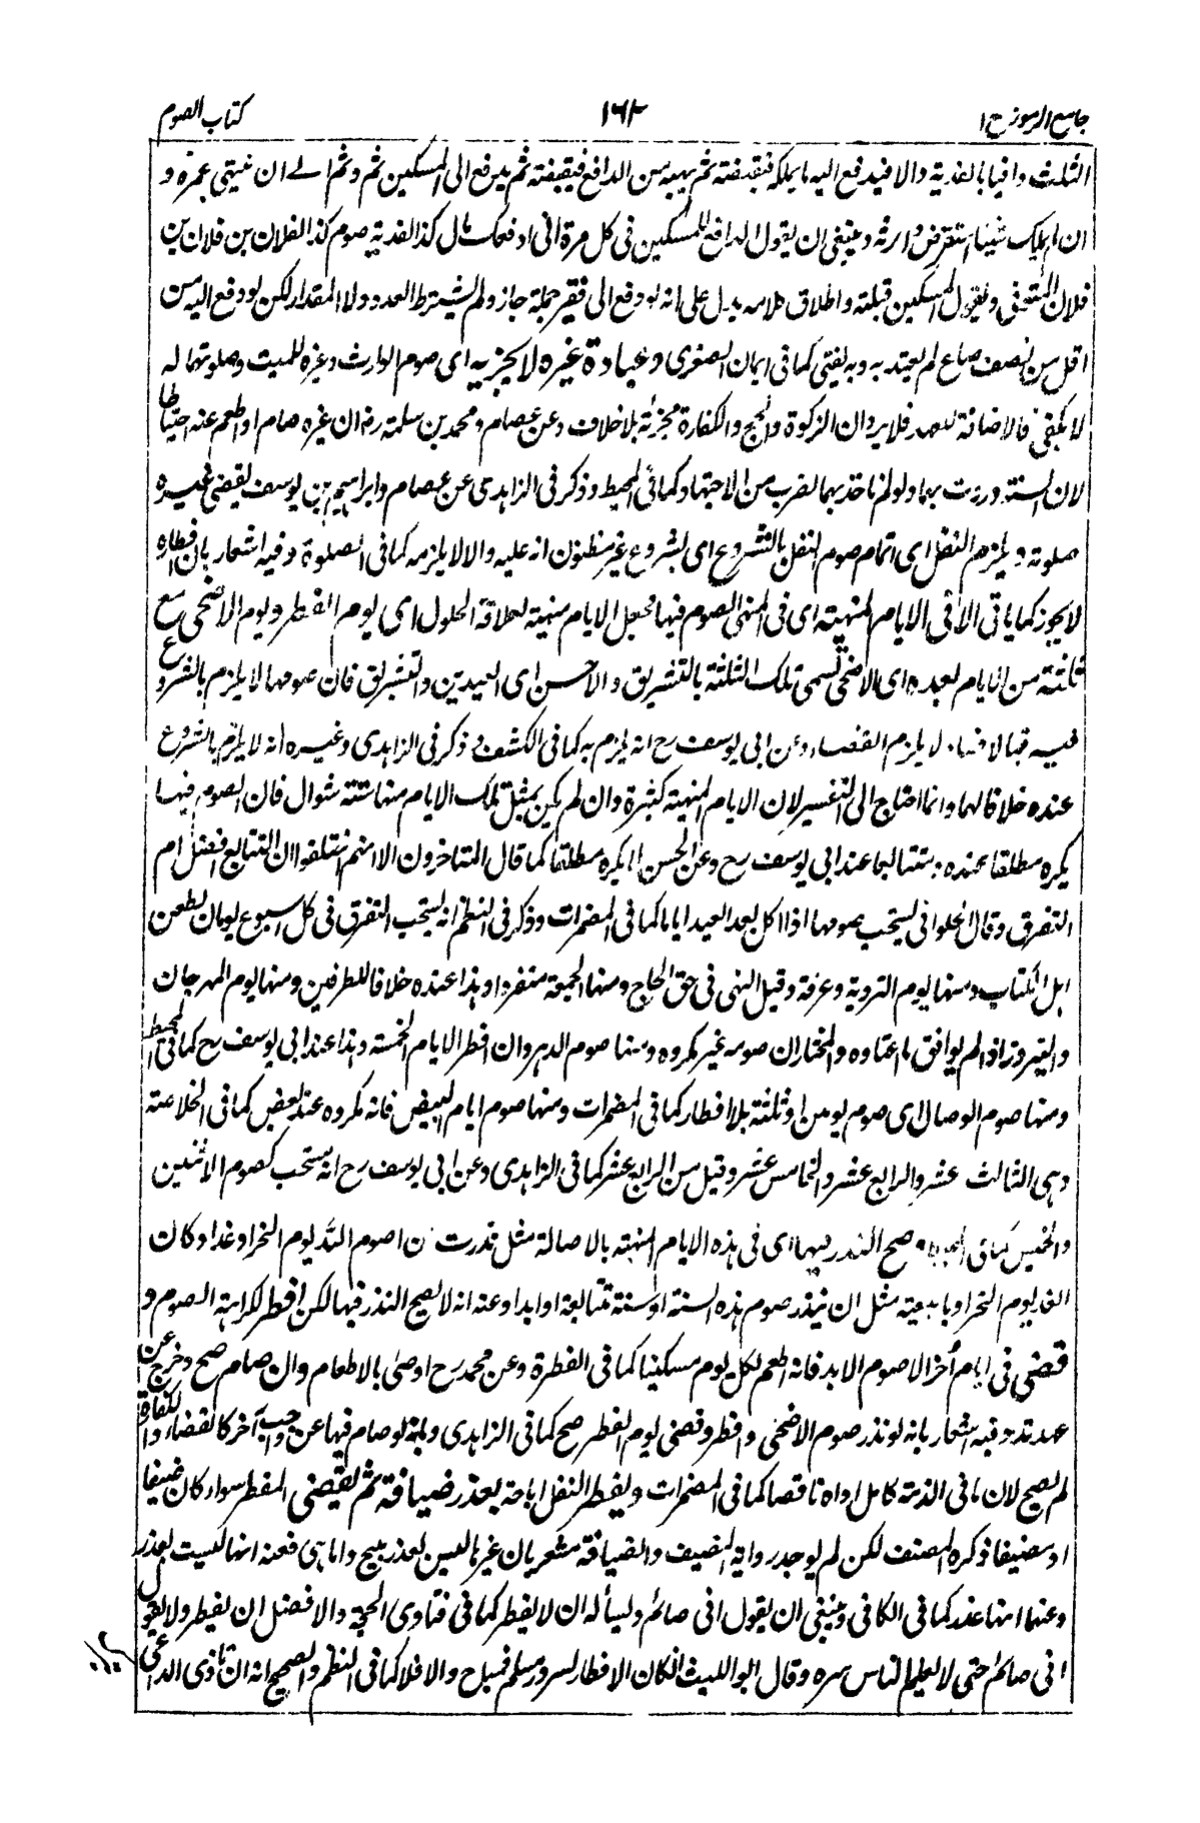 جامع الرموز ج ١ ١٦٢ كتاب الصوم
الثلث وافيا بالفدية والا فيدفع اليه ما يملكه فيقبضه ثم يهبه من الدافع فيقبضه ثم يدفع الى المسكين ثم وثم الى ان ينتهى عمره و
ان لم يملك شيئا استقرض وارثه وينبغى ان يقول الدافع للمسكين فى كل مرة انى ادفعك مال كذا لفدية صوم كذا لفلان بن فلان بن
فلان المتوفى ويقول المسكين قبلته واطلاق كلامه يدل على انه لو دفع الى فقير جملة جاز ولم يشترط العدد ولا المقدار لكن لو دفع اليه من
اقل من نصف صاع لم يعتد به وبه يفتى كما فى ايمان الصغرى وعبادة غيره لا يجزيه اى صوم الوارث وغيره للميت وصلوتهما له
لا يكفى فالاضافة للعهد فلا يرد ان الزكوة والحج والكفارة مجزئة بلا خلاف وعن عصام ومحمد بن سلمة رح ان غيره صام او اطعم عنه احتياطا
لان السنة وردت بهما ولو لم ناخذ بهما لضرب من الاجتهاد كما فى المحيط وذكر فى الزاهدى عن عصام وابراهيم بن يوسف يقضى غيره
صلوته ويلزم النفل اى اتمام صوم النفل بالشروع اى بشروع غير مظنون انه عليه والا لا يلزمه كما فى الصلوة وفيه اشعار بان افطاره
لا يجوز كما ياتى الا فى الايام المنهية اى فى المنهى الصوم فيها فجعل الايام منهية لعلاقة الحلول اى يوم الفطر ويوم الاضحى مع
ثلثة من الايام بعده اى الاضحى تسمى تلك الثلثة بالتشريق والاحسن اى العيدين والتشريق فان صومها لا يلزم بالشروع
فيه لا يلزم القضاء وعن ابى يوسف رح انه يلزم به كما فى الكشف وذكر فى الزاهدى وغيره انه لا يلزم بالشروع
عنده خلافا لهما وانما احتاج الى التفسير لان الايام المنهية كثيرة وان لم يكن بمثل تلك الايام منها ستة شوال فان الصوم فيها
يكره مطلقا عنده ومتتابعا عند ابى يوسف رح وعن الحسن لا يكره مطلقا كما قال المتاخرون الا انهم اختلفوا ان التتابع افضل ام
التفرق وقال الحلوانى يستحب صومها اذا اكل بعد العيد اياما كما فى المضمرات وذكر فى النظم انه يستحب التفرق فى كل اسبوع يومان لطعن
اهل الكتاب ومنها يوم التروية وعرفة وقيل النهى فى حق الحاج ومنها الجمعة منفردا وهذا عنده خلافا للطرفين ومنها يوم المهرجان
والنيروز اذا لم يوافق ما اعتاده والمختار ان صومه غير مكروه ومنها صوم الدهر وان افطر الايام الخمسة وهذا عند ابى يوسف رح كما فى المحيط
ومنها صوم الوصال اى صوم يومين او ثلثة بلا افطار كما فى المضمرات ومنها صوم ايام البيض فانه مكروه عند بعض كما فى الخلاصة
وهى الثالث عشر والرابع عشر والخامس عشر وقيل من الرابع عشر كما فى الزاهدى وعن ابى يوسف رح انه مستحب كصوم الاثنين
والخميس كما فى المحيط وصح النذر فيها اى فى هذه الايام المنهية بالاصالة مثل نذرت ان اصوم لله يوم النحر او غدا وكان
الغد يوم النحر او بالتبعية مثل ان ينذر صوم هذه السنة او سنة متتابعة او ابدا وعنه انه لا يصح النذر فيها لكن افطر لكراهة الصوم و
قضى فى ايام أخر الا صوم الابد فانه اطعم لكل يوم مسكينا كما فى الفطرة وعن محمد رح اوصى بالاطعام وان صام صح وخرج عن
عهدته وفيه اشعار بانه لو نذر صوم الاضحى وافطر وقضى يوم الفطر صح كما فى الزاهدى وبانه لو صام فيها عن واجب آخر كالقضاء والكفارة
لم يصح لان ما فى الذمة كامل اداه ناقصا كما فى المضمرات ويفطر النفل اباحة بعذر ضيافة ثم يقضى المفطر سواء كان ضيفا
او مضيفا ذكره المصنف لكن لم يوجد رواية المضيف والضيافة مشعر بان غير ما ليس بعذر مبيح واما هى فعنه انها ليست بعذر
وعنها انها عذر كما فى الكافى وينبغى ان يقول انى صائم ويسأله ان لا يفطر كما فى فتاوى الحجة والافضل ان يفطر ولا يقول
انى صائم حتى لا يعلم الناس سره وقال ابو الليث ان كان الافطار لسرور مسلم فمباح والا فلا كما فى النظم والصحيح انه ان تاذى الداعى